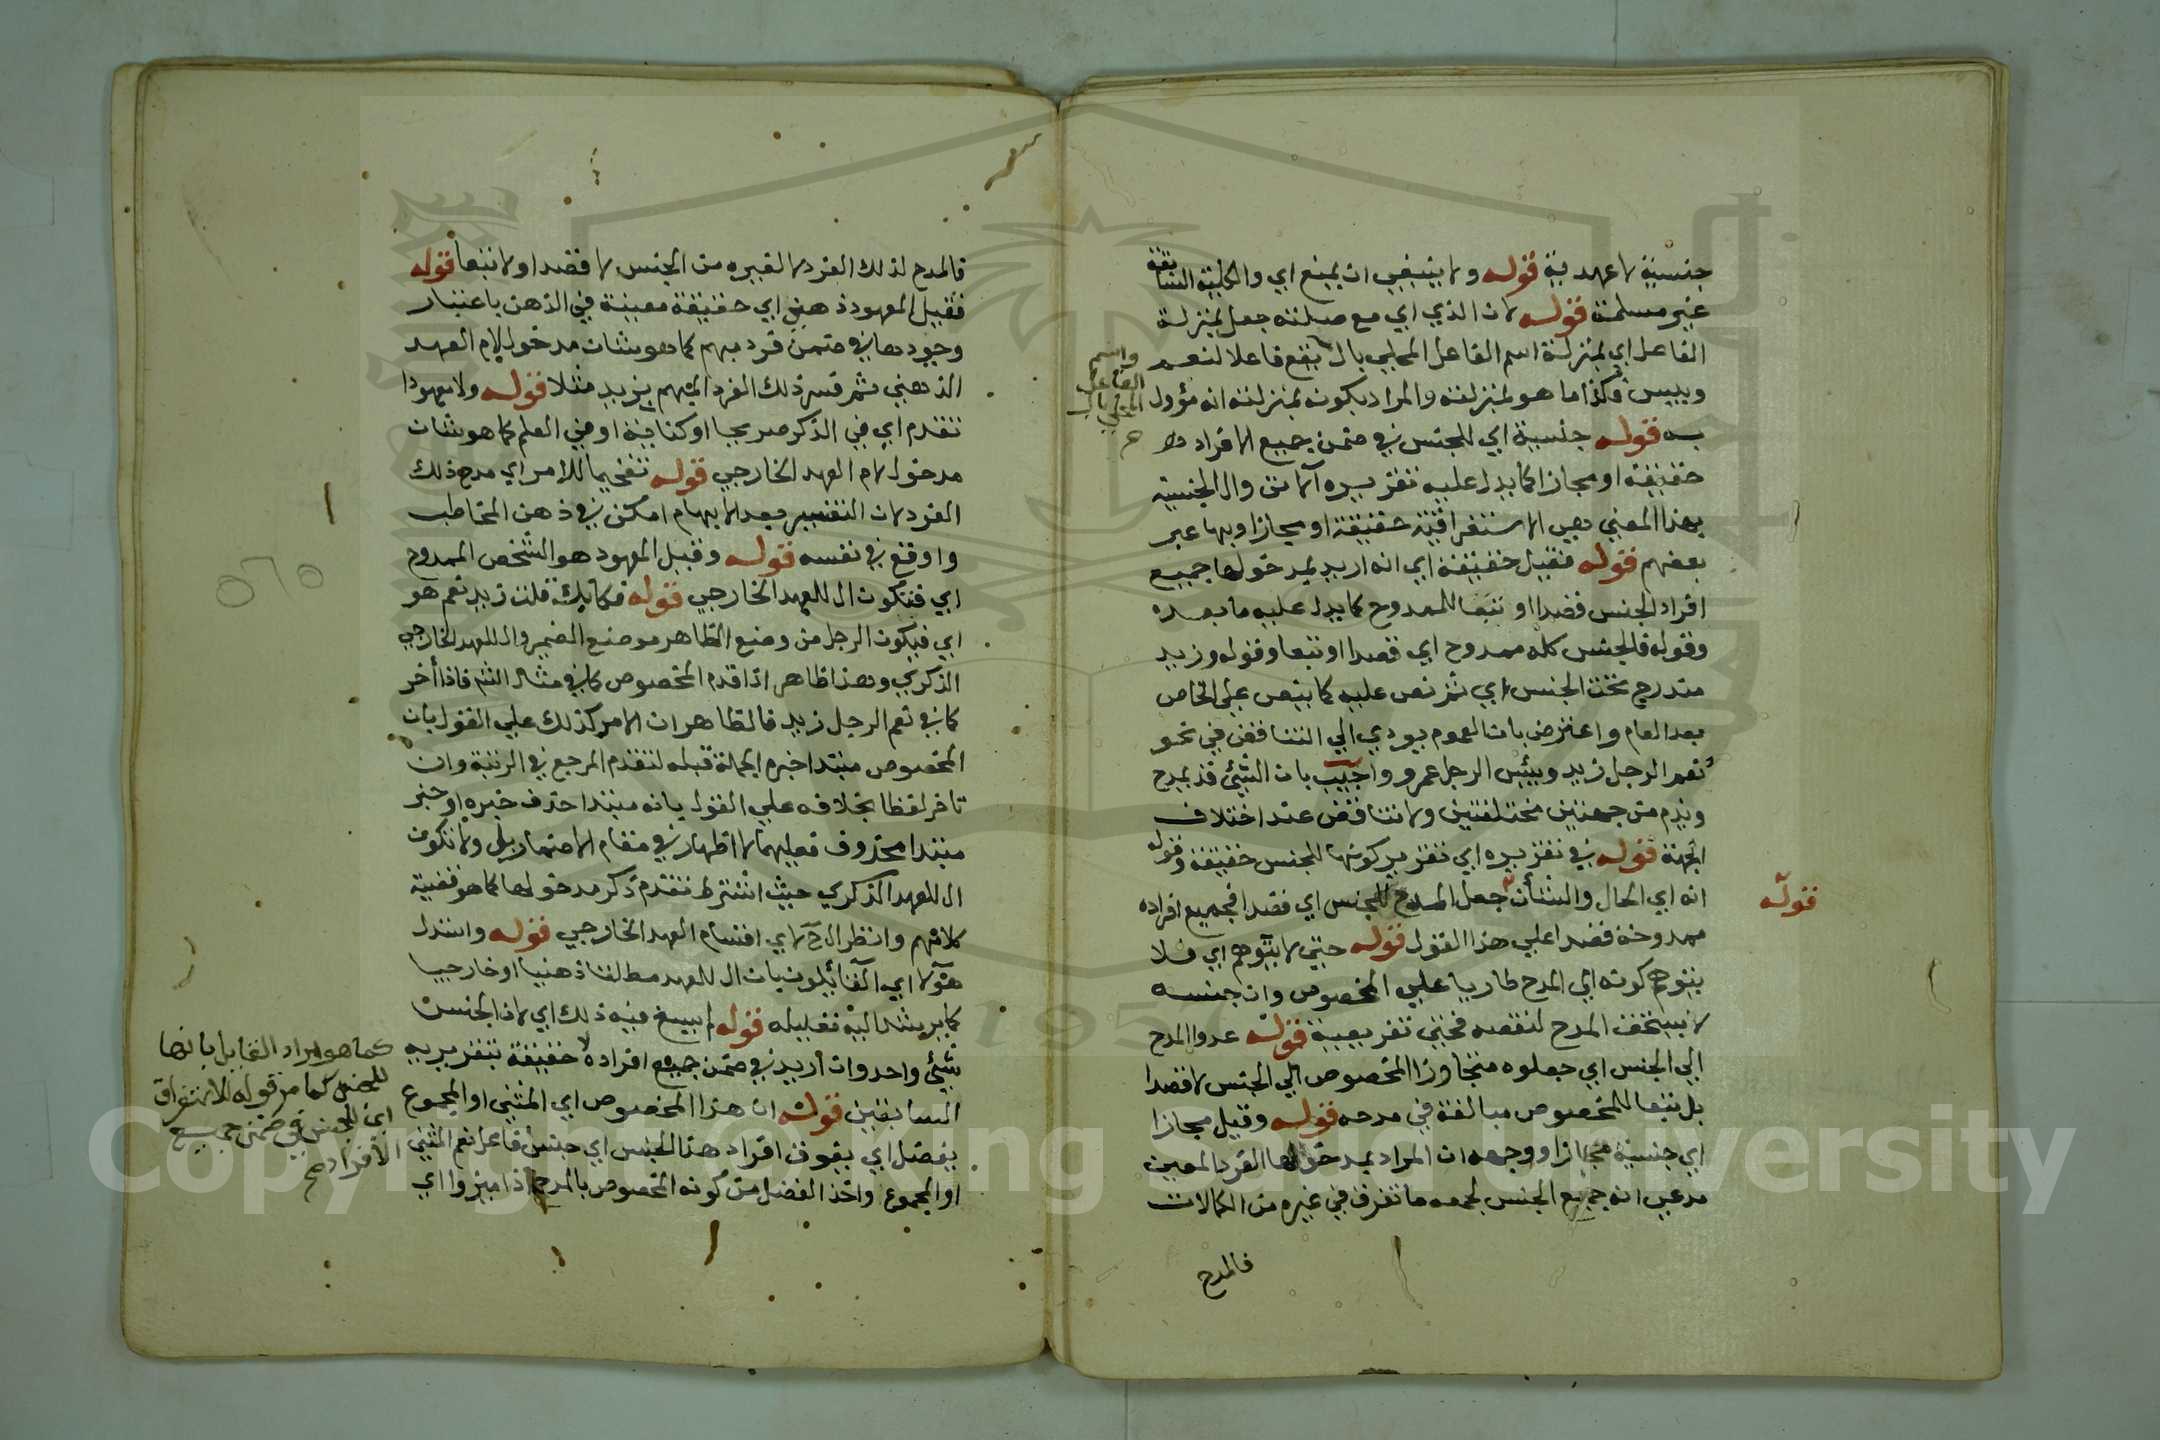 جنسية لا عهدية قوله ولا ينبغي ان يمنع اي والكلية السابقة
غير مسلمة قوله لان الذي اي مع صلته جعل بمنزلة
الفاعل اي بمنزلة اسم الفاعل المحلي بال يقع فاعلا لنعم
وبيس فكذا ما هو بمنزلته والمراد بكونه بمنزلته انه مؤول
به قوله جنسية اي للجنس في ضمن جميع الافراد
حقيقة او مجازا كما يدل عليه تقريره الاتي وال الجنسية
بهذا المعني هي الاستغراقية حقيقة او مجازا وبها عبر
بعضهم قوله فقيل حقيقة اي انه اريد بمدخولها جميع
افراد الجنس قصدا او تبعا للممدوح كما يدل عليه ما بعده
وقوله فالجنس كله ممدوح اي قصدا او تبعا وقوله وزيد
مندرج تحت الجنس اي ثم نص عليه كما ينص علي الخاص
بعد العام واعترض بان العموم يودي الي التناقض في نحو
نعم الرجل زيد وبيئس الرجل عمرو واجيب بان الشيئ قد يمدح
ويذم من جهتين مختلفتين ولا تناقض عند اختلاف
الجهة قوله في تقريره اي تقرير كونها للجنس حقيقة وقوله
انه اي الحال والشأن جعل المدح للجنس اي قصدا فجميع افراده
ممدوحة قصدا علي هذا القول قوله حتي لا يتوهم اي فلا
يتوهم كونه اي المدح طاريا علي المخصوص وان جنسه
لا يستحق المدح لنقصه فحتي تفريعية قوله عدوا المدح
الي الجنس اي جعلوه متجاوزا المخصوص الي الجنس لا قصدا
بل تبعا للمخصوص مبالغة في مدحه قوله وقيل مجازا
اي جنسية مجازا ووجهه ان المراد بمدخولها الفرد المعين
مدعي انه جميع الجنس لجمعه ما تفرق في غيره من الكمالات
فالمدح
واسم
الفاعل
المحلي بال
قوله
فالمدح لذلك الفرد لا لغيره من الجنس لا قصدا ولا تبعا قوله
فقيل المعهود ذهني اي حقيقة معينة في الذهن باعتبار
وجودها في ضمن فرد مبهم كما هو شان مدخول لام العهد
الذهني ثم فسر ذلك الفرد المبهم بزيد مثلا قوله ولا معهودا
تقدم اي في الذكر صريحا او كناية او في العلم كما هو شان
مدخول لام العهد الخارجي قوله تفخيما للامر اي مدح ذلك
الفرد لان التفسير بعد الابهام امكن في ذهن المخاطب
واوقع في نفسه قوله وقيل المعهود هو الشخص الممدوح
اي فتكون ال للعهد الخارجي قوله فكأنك قلت زيد نعم هو
اي فيكون الرجل من وضع الظاهر موضع الضمير وال للعهد الخارجي
الذكري وهذا ظاهر اذا قدم المخصوص كما في مثال الشم فاذا أخر
كما في نعم الرجل زيد فالظاهر ان الامر كذلك علي القول بان
المخصوص مبتدا خبره الجملة قبله لتقدم المرجع في الرتبة وان
تاخر لفظا بخلافه علي القول بانه مبتدا حذف خبره او خبر
مبتدا محذوف فعليهما لا اظهار في مقام الاضمار بل ولا تكون
ال للعهد الذكري حيث اشترط تقدم ذكر مدخولها كما هو قضية
كلامهم وانظر ال ح لاي اقسام العهد الخارجي قوله واستدل
هؤلا اي القائلون بان ال للعهد مطلقا ذهنيا او خارجيا
كما يرشد اليه تعليله قوله لم يسغ فيه ذلك اي لان الجنس
شيئ واحد وان أريد في ضمن جميع افراده حقيقة بتقريريه
السابقين قوله ان هذا المخصوص اي المثني او المجموع
يفضل اي يفوق افراد هذا الجنس اي جنس فاعل نعم المثني
او المجموع واخذ الفضل من كونه المخصوص بالمدح اذا ميزوا اي
كما هو مراد القايل بانها
للجنس كما مر قوله للاستغراق
اي للجنس في ضمن جميع
الأفراد صح
Copyright © King Saud University
1957